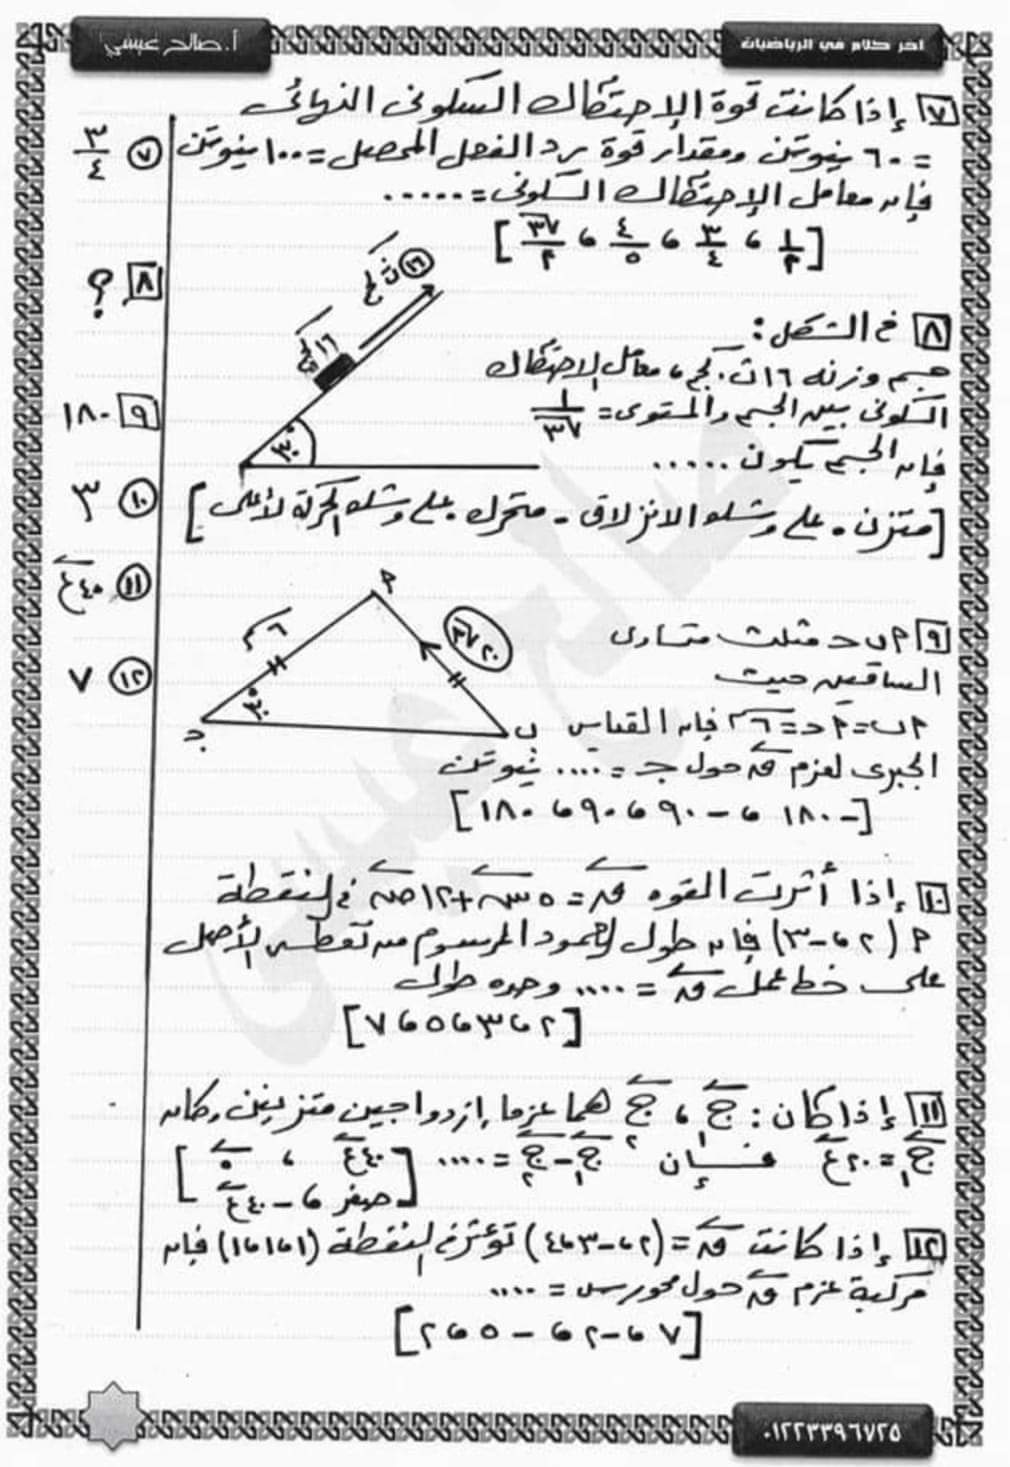 أ. صالح عيسي
اخر كلام في الرياضيات
٧ إذا كانت قوة الإحتكاك السكونى النهائى
= ٦٠ نيوتن ومقدار قوة رد الفعل المحصل = ١٠٠ نيوتن
فإن معامل الإحتكاك السكونى = .....
[ ١/٢ ، ٣/٤ ، ٤/٥ ، √٣/٢ ]
٧ ٣/٤
٨ فى الشكل :
جسم وزنه ١٦ ث.كجم ، معامل الاحتكاك
السكونى بين الجسم والمستوى = ١/√٣
فإن الجسم يكون .....
[ متزن - على وشك الانزلاق - متحرك - على وشك الحركة لأعلى ]
١٦ ث كجم
١٦ كجم
٣٠°
٨ ؟
٩ ١٨٠
١٠ ٣
١١ ٤٠ ع
١٢ ٧
٩ ٢ ب ح مثلث متساوى
الساقين حيث
٢ب = ٢ح = ٦سم فإن القياس
الجبرى لعزم ق حول جـ = .... نيوتن
[ -١٨٠ ، -٩٠ ، ٩٠ ، ١٨٠ ]
٢
٦سم
٢٠√٣
٣٠°
جـ
ب
١٠ إذا أثرت القوه ق = ٥س + ١٢ص فى نقطة
٢ (٢ ، -٣) فإن طول العمود المرسوم من نقطة الأصل
على خط عمل ق = .... وحده طول
[ ٢ ، ٣ ، ٥ ، ٧ ]
١١ إذا كان : ج١ ، ج٢ هما عزما إزدواجين متزنين وكان
ج١ = ٢٠ع فإن ج١ - ج٢ = .... [ ٤٠ع ، ٠ ،
صفر ، -٤٠ع ]
١٢ إذا كانت ق = (٢ ، -٣ ، ٤) تؤثر فى نقطة (١ ، ١ ، ١) فإن
مركبة عزم ق حول محور س = ....
[ ٧ ، -٢ ، -٥ ، ٢ ]
٠١٢٢٣٣٩٦٧٢٥